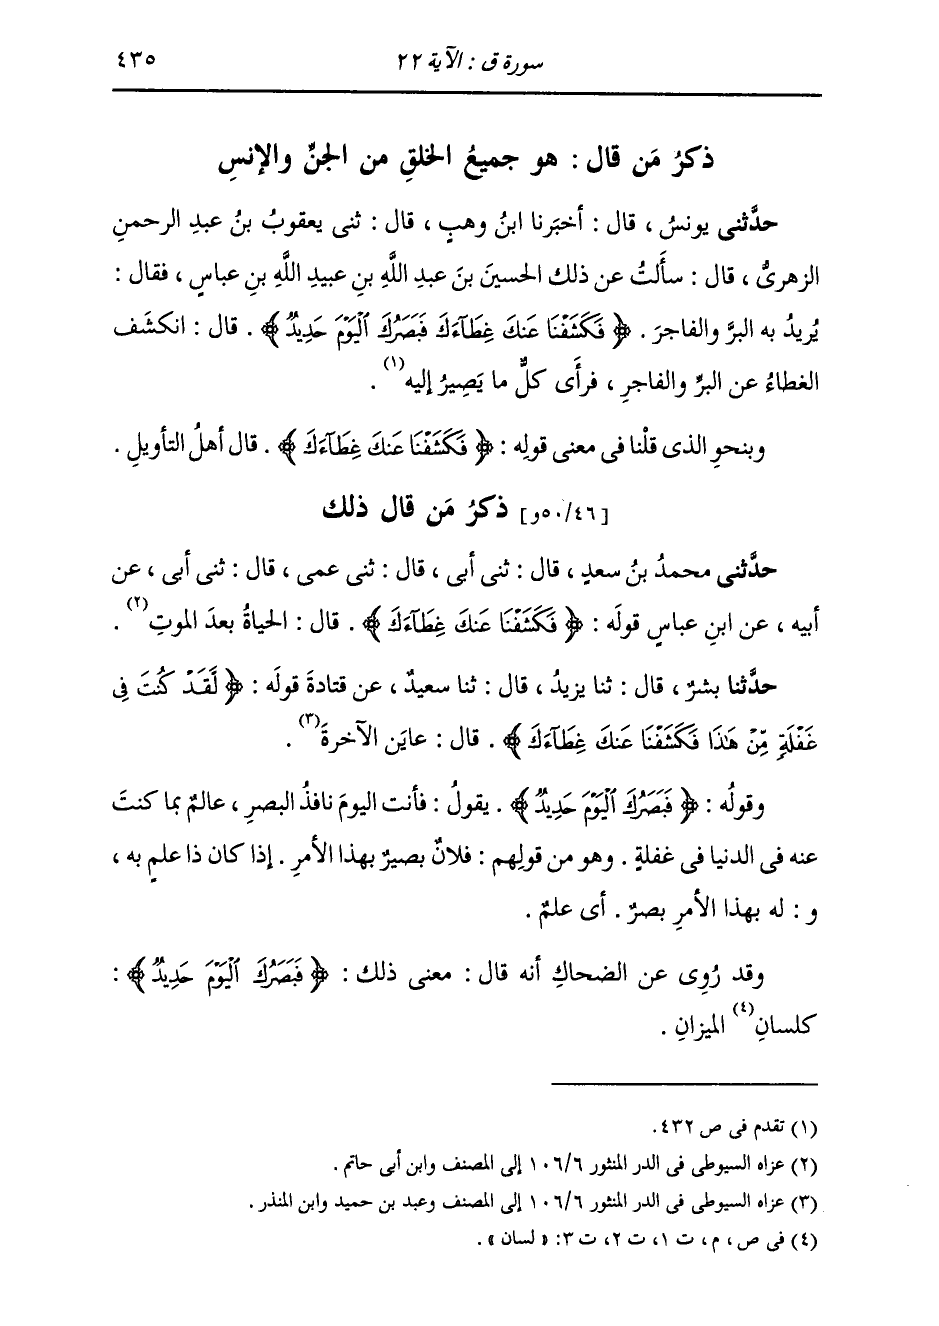 سورة ق : الآية ٢٢ ٤٣٥
ذكرُ مَن قال : هو جميعُ الخلقِ من الجنِّ والإنسِ
حدَّثنى يونسُ ، قال : أخبَرنا ابنُ وهبٍ ، قال : ثنى يعقوبُ بنُ عبدِ الرحمنِ
الزهرىُّ ، قال : سألتُ عن ذلك الحسينَ بنَ عبدِ اللَّهِ بنِ عبيدِ اللَّهِ بنِ عباسٍ ، فقال :
يُريدُ به البرَّ والفاجرَ . ﴿ فَكَشَفْنَا عَنكَ غِطَآءَكَ فَبَصَرُكَ ٱلْيَوْمَ حَدِيدٌ ﴾ . قال : انكشَف
الغطاءُ عن البرِّ والفاجرِ ، فرأَى كلٌّ ما يَصِيرُ إليه(١) .
وبنحوِ الذى قلْنا فى معنى قولِه : ﴿ فَكَشَفْنَا عَنكَ غِطَآءَكَ ﴾ . قال أهلُ التأويلِ .
[٥٠/٤٦و] ذكرُ مَن قال ذلك
حدَّثنى محمدُ بنُ سعدٍ ، قال : ثنى أبى ، قال : ثنى عمى ، قال : ثنى أبى ، عن
أبيه ، عن ابنِ عباسٍ قولَه : ﴿ فَكَشَفْنَا عَنكَ غِطَآءَكَ ﴾ . قال : الحياةُ بعدَ الموتِ(٢) .
حدَّثنا بشرٌ ، قال : ثنا يزيدُ ، قال : ثنا سعيدٌ ، عن قتادةَ قولَه : ﴿ لَّقَدْ كُنتَ فِى
غَفْلَةٍ مِّنْ هَٰذَا فَكَشَفْنَا عَنكَ غِطَآءَكَ ﴾ . قال : عايَن الآخرةَ(٣) .
وقولُه : ﴿ فَبَصَرُكَ ٱلْيَوْمَ حَدِيدٌ ﴾ . يقولُ : فأنت اليومَ نافذُ البصرِ ، عالمٌ بما كنتَ
عنه فى الدنيا فى غفلةٍ . وهو من قولِهم : فلانٌ بصيرٌ بهذا الأمرِ . إذا كان ذا علمٍ به ،
و : له بهذا الأمرِ بصرٌ . أى علمٌ .
وقد رُوِى عن الضحاكِ أنه قال : معنى ذلك : ﴿ فَبَصَرُكَ ٱلْيَوْمَ حَدِيدٌ ﴾ :
كلسانِ(٤) الميزانِ .
(١) تقدم فى ص ٤٣٢.
(٢) عزاه السيوطى فى الدر المنثور ١٠٦/٦ إلى المصنف وابن أبى حاتم .
(٣) عزاه السيوطى فى الدر المنثور ١٠٦/٦ إلى المصنف وعبد بن حميد وابن المنذر .
(٤) فى ص ، م ، ت ١، ت ٢، ت ٣: « لسان » .